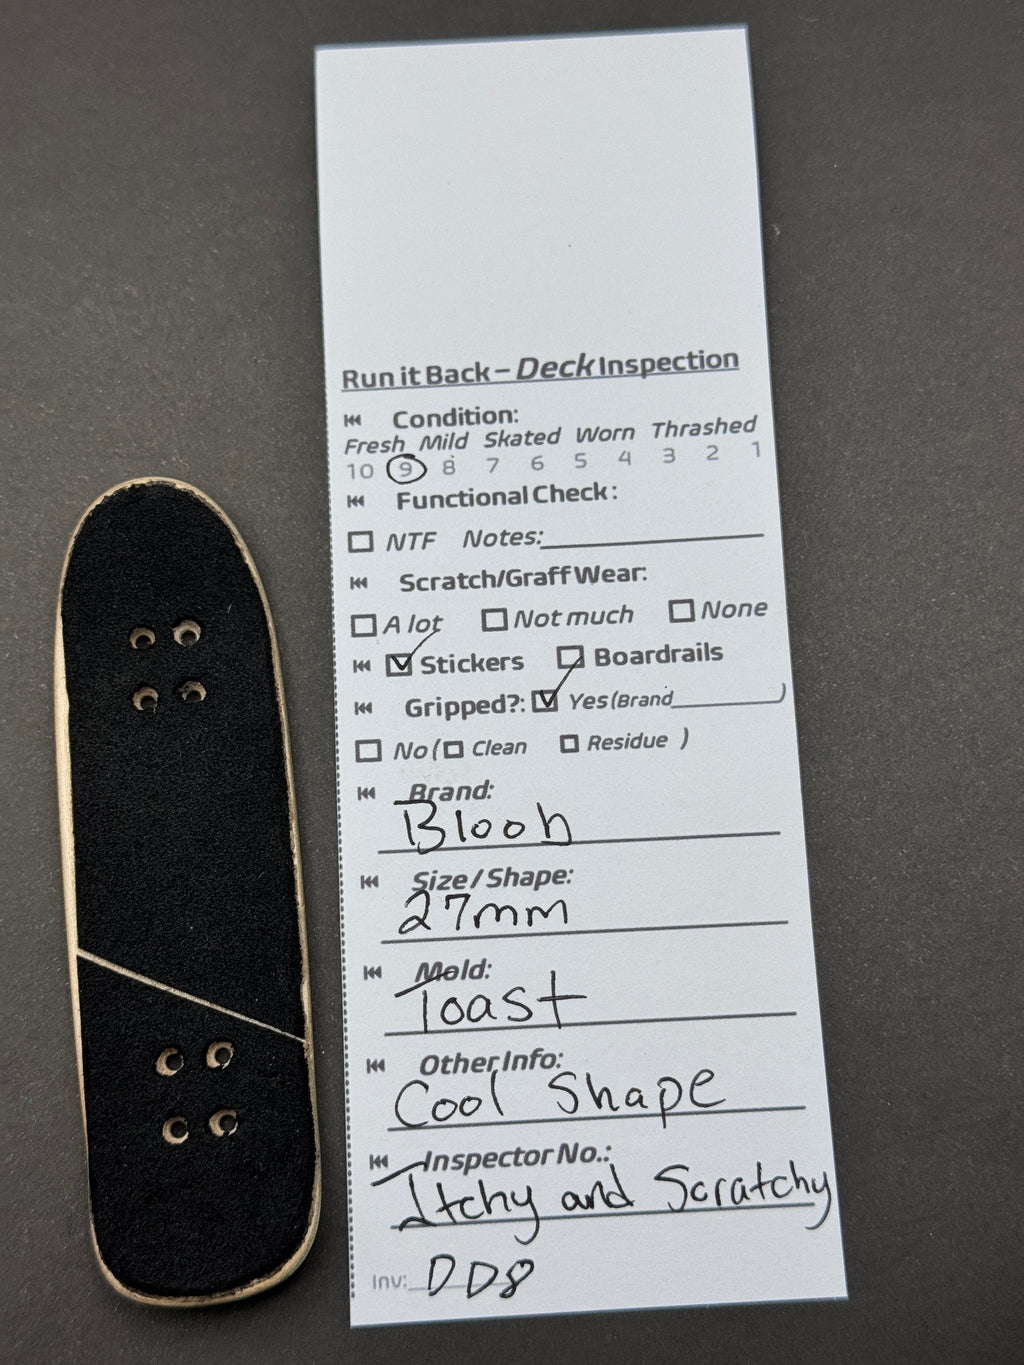 Run it Back – Deck Inspection
Condition:
Fresh Mild Skated Worn Thrashed
10 9 8 7 6 5 4 3 2 1
Functional Check:
NTF Notes:
Scratch/Graff Wear:
A lot Not much None
Stickers Boardrails
Gripped?: Yes (Brand )
No ( Clean Residue )
Brand:
Bloob
Size / Shape:
27mm
Mold:
Toast
Other Info:
Cool Shape
Inspector No.:
Itchy and Scratchy
Inv: DD8